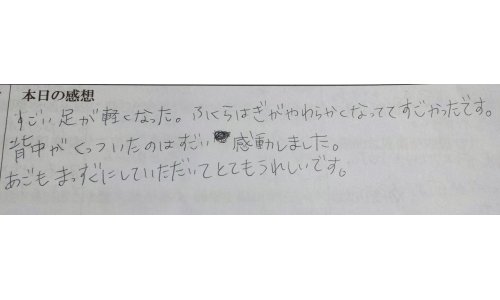 本日の感想
すごい足が軽くなった。ふくらはぎがやわらかくなっててすごかったです。
背中がくっついたのはすごい感動しました。
あごもまっすぐにしていただいてとてもうれしいです。